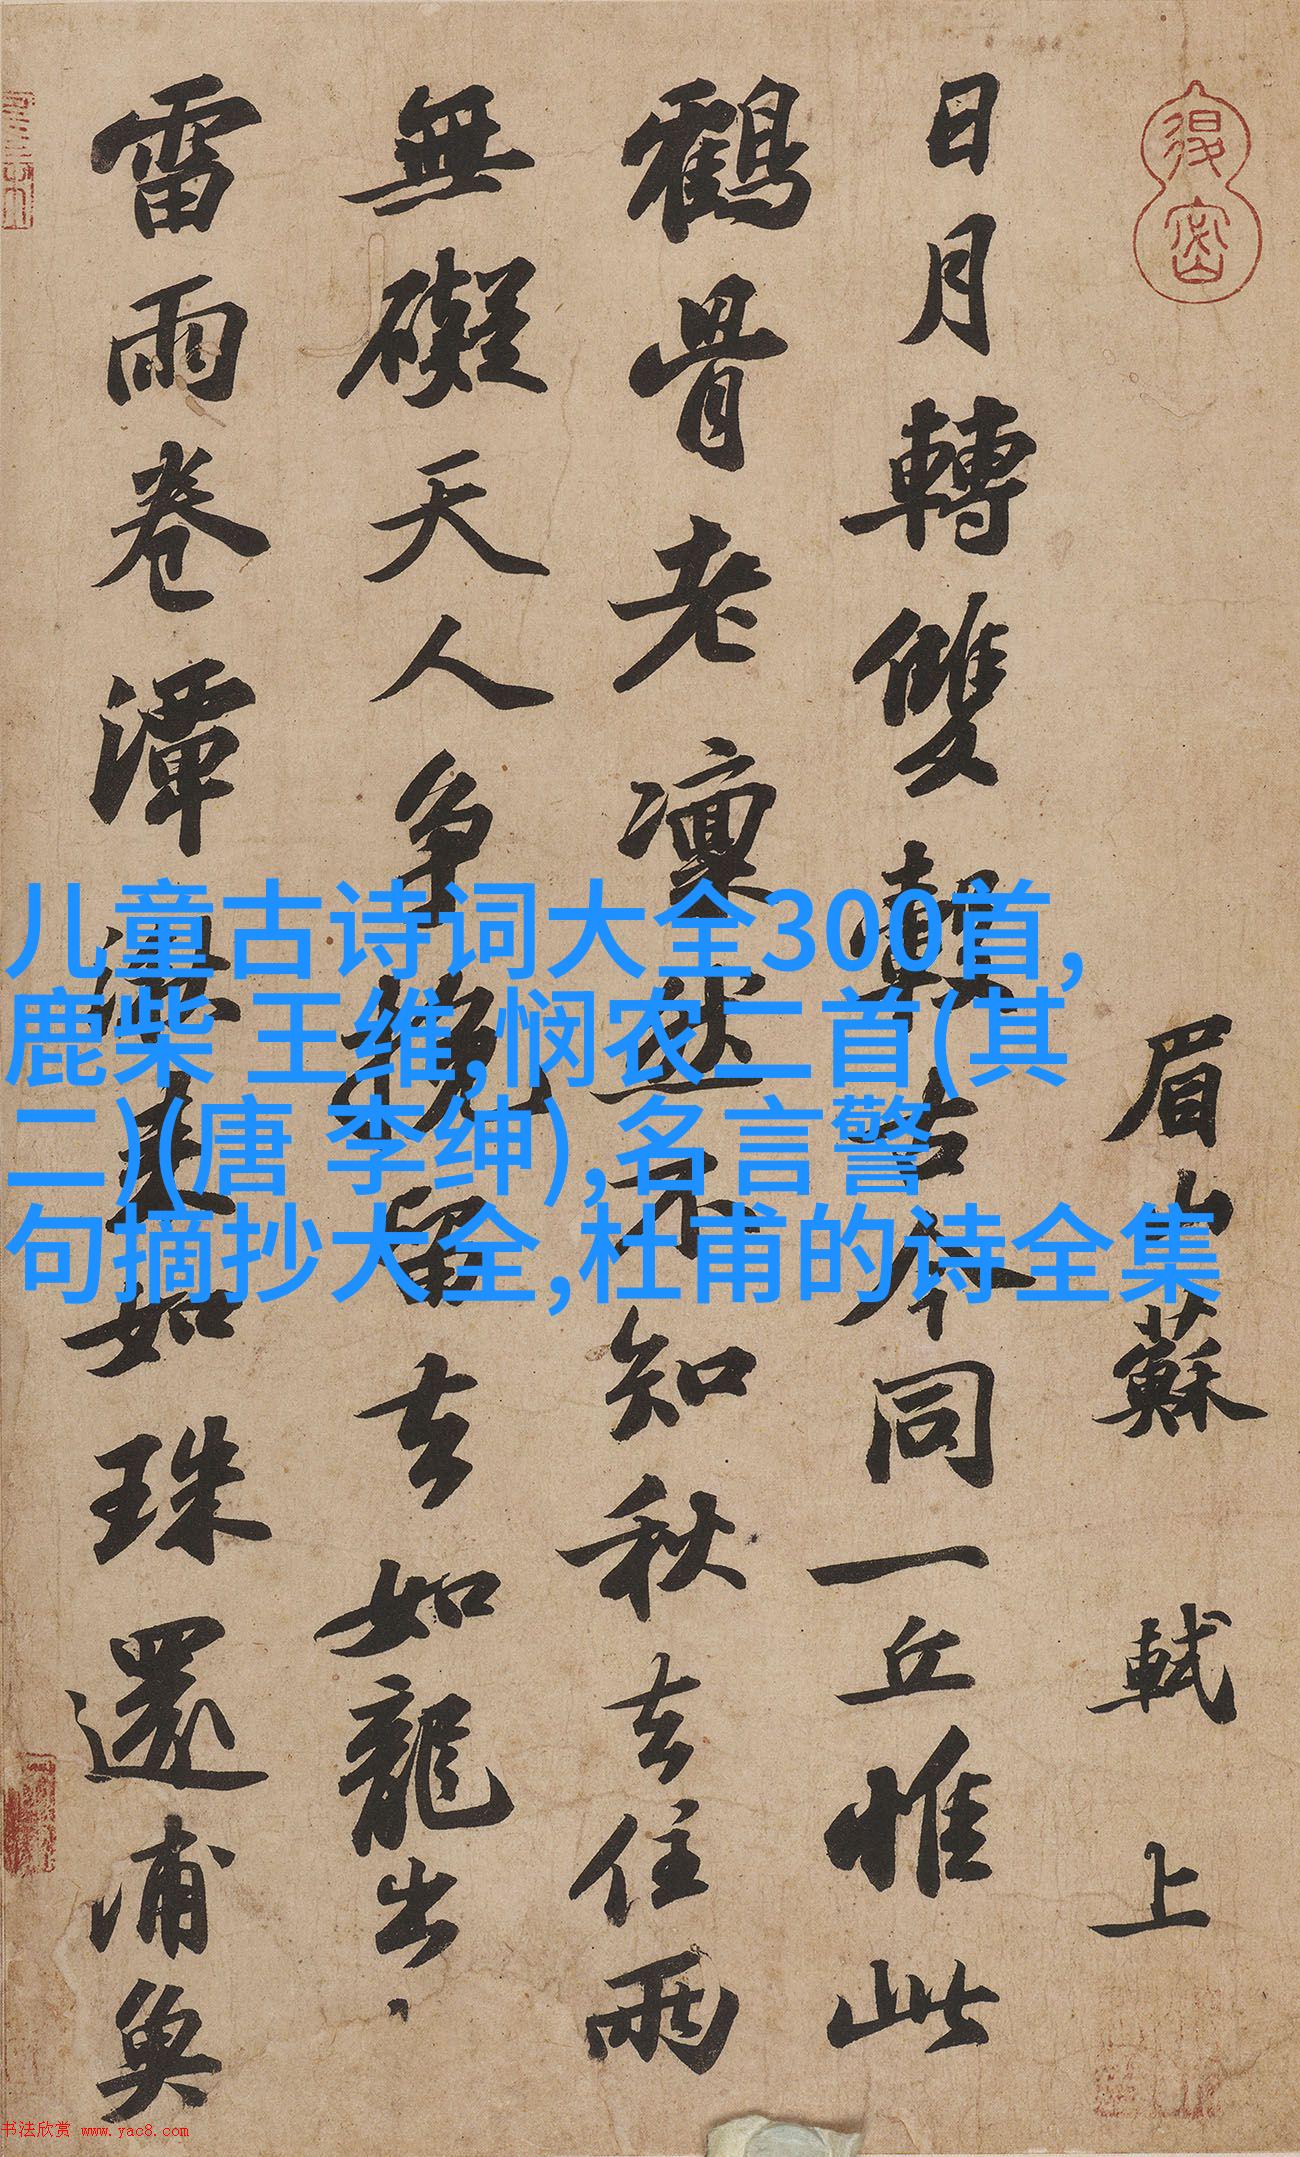 眉山蘇 軾 上
日月轉雙轂古今同一丘惟此
鶴骨老凜然不知秋去住兩
無礙天人争挽留去如龍出
雷雨卷潭湫来如珠還浦魚
儿童古诗词大全300首,
鹿柴 王维,悯农二首(其
二)(唐 李绅),名言警
句摘抄大全,杜甫的诗全集
书法欣赏 www.yac8.com